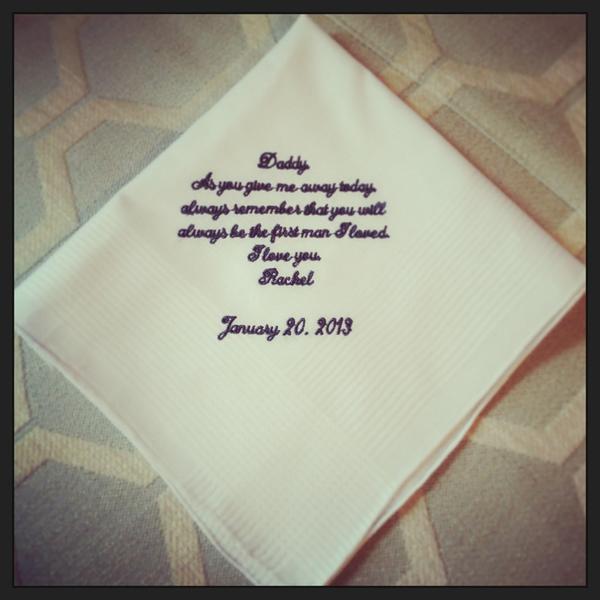 Daddy,
As you give me away today,
always remember that you will
always be the first man I loved.
I love you,
Rachel
January 20, 2013